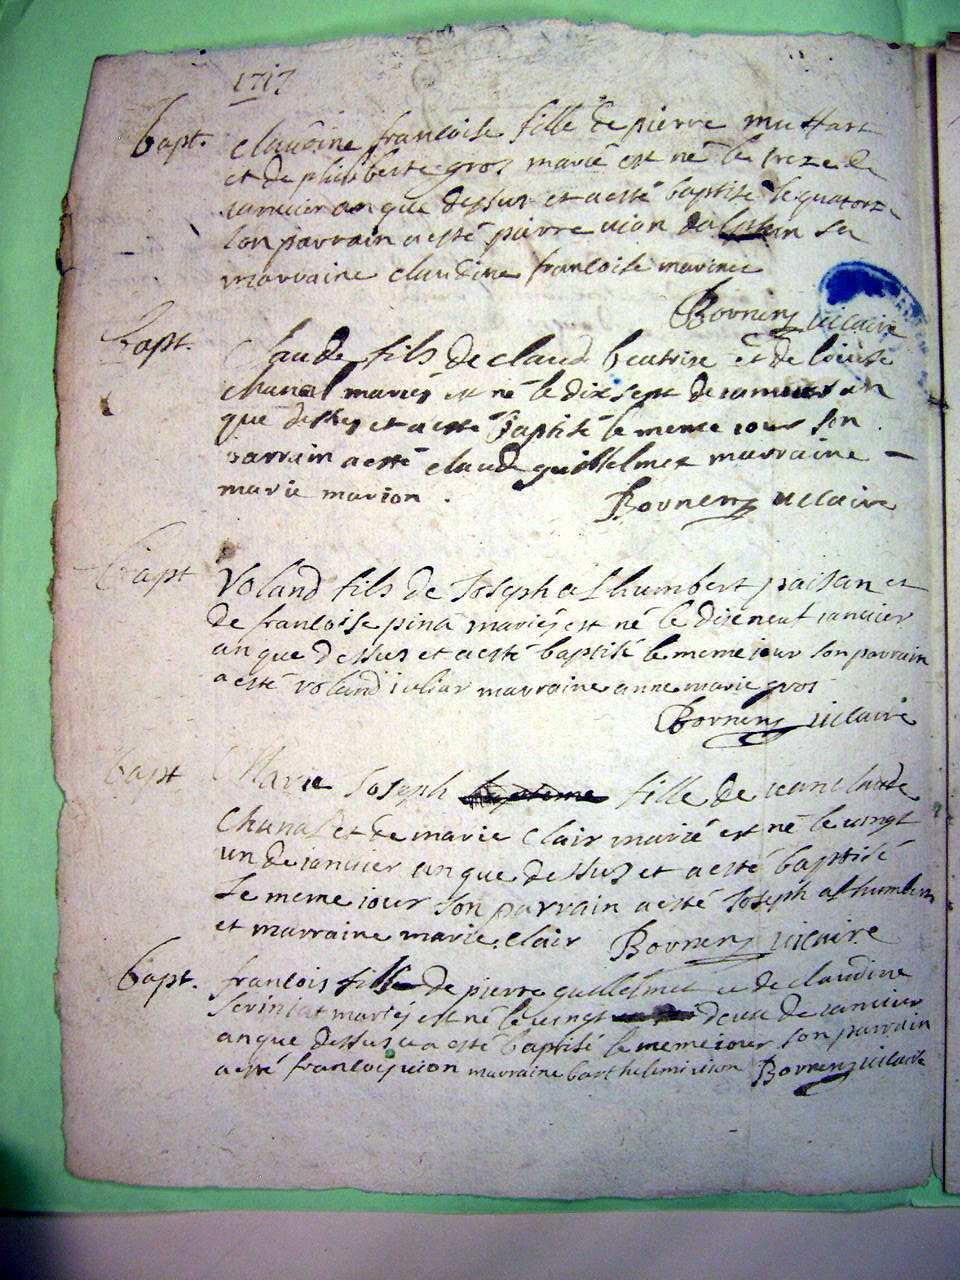 1717
Bapt. claudine francoise fille de pierre muttart
et de philiberte gros marié est né le treze de
ianuier an que dessus et a esté baptisé le quatorz
son parrain a esté pierre uion sa
marraine claudine francoise marinet
Bornery uicaire
Bapt. Claude fils de claud beatrise et de louise
chanal mariés est né le dix sept de ianuier an
que dessus et a esté baptisé le meme iour son
parrain a esté claude guillelmet marraine
marie marion. Bornery uicaire
Bapt Voland fils de Joseph alhumbert paisan et
de francoise pina mariés est né le dixneuf ianuier
an que dessus et a esté baptisé le meme iour son parrain
a esté voland iuliar marraine anne marie gros
Bornery uicaire
bapt Marie Joseph fille de iean claude
Chanal et de marie clair marié est né le uingt
un de ianuier an que dessus et a esté baptisé
le meme iour son parrain a esté Joseph alhumbert
et marraine marie clair Bornery uicaire
bapt. francois fils de pierre guillelmet et de claudine
mariés est né le uingt deux de ianuier
an que dessus a esté baptisé le meme iour son parrain
a esté francois uion marraine barthelemi uion Bornery uicaire